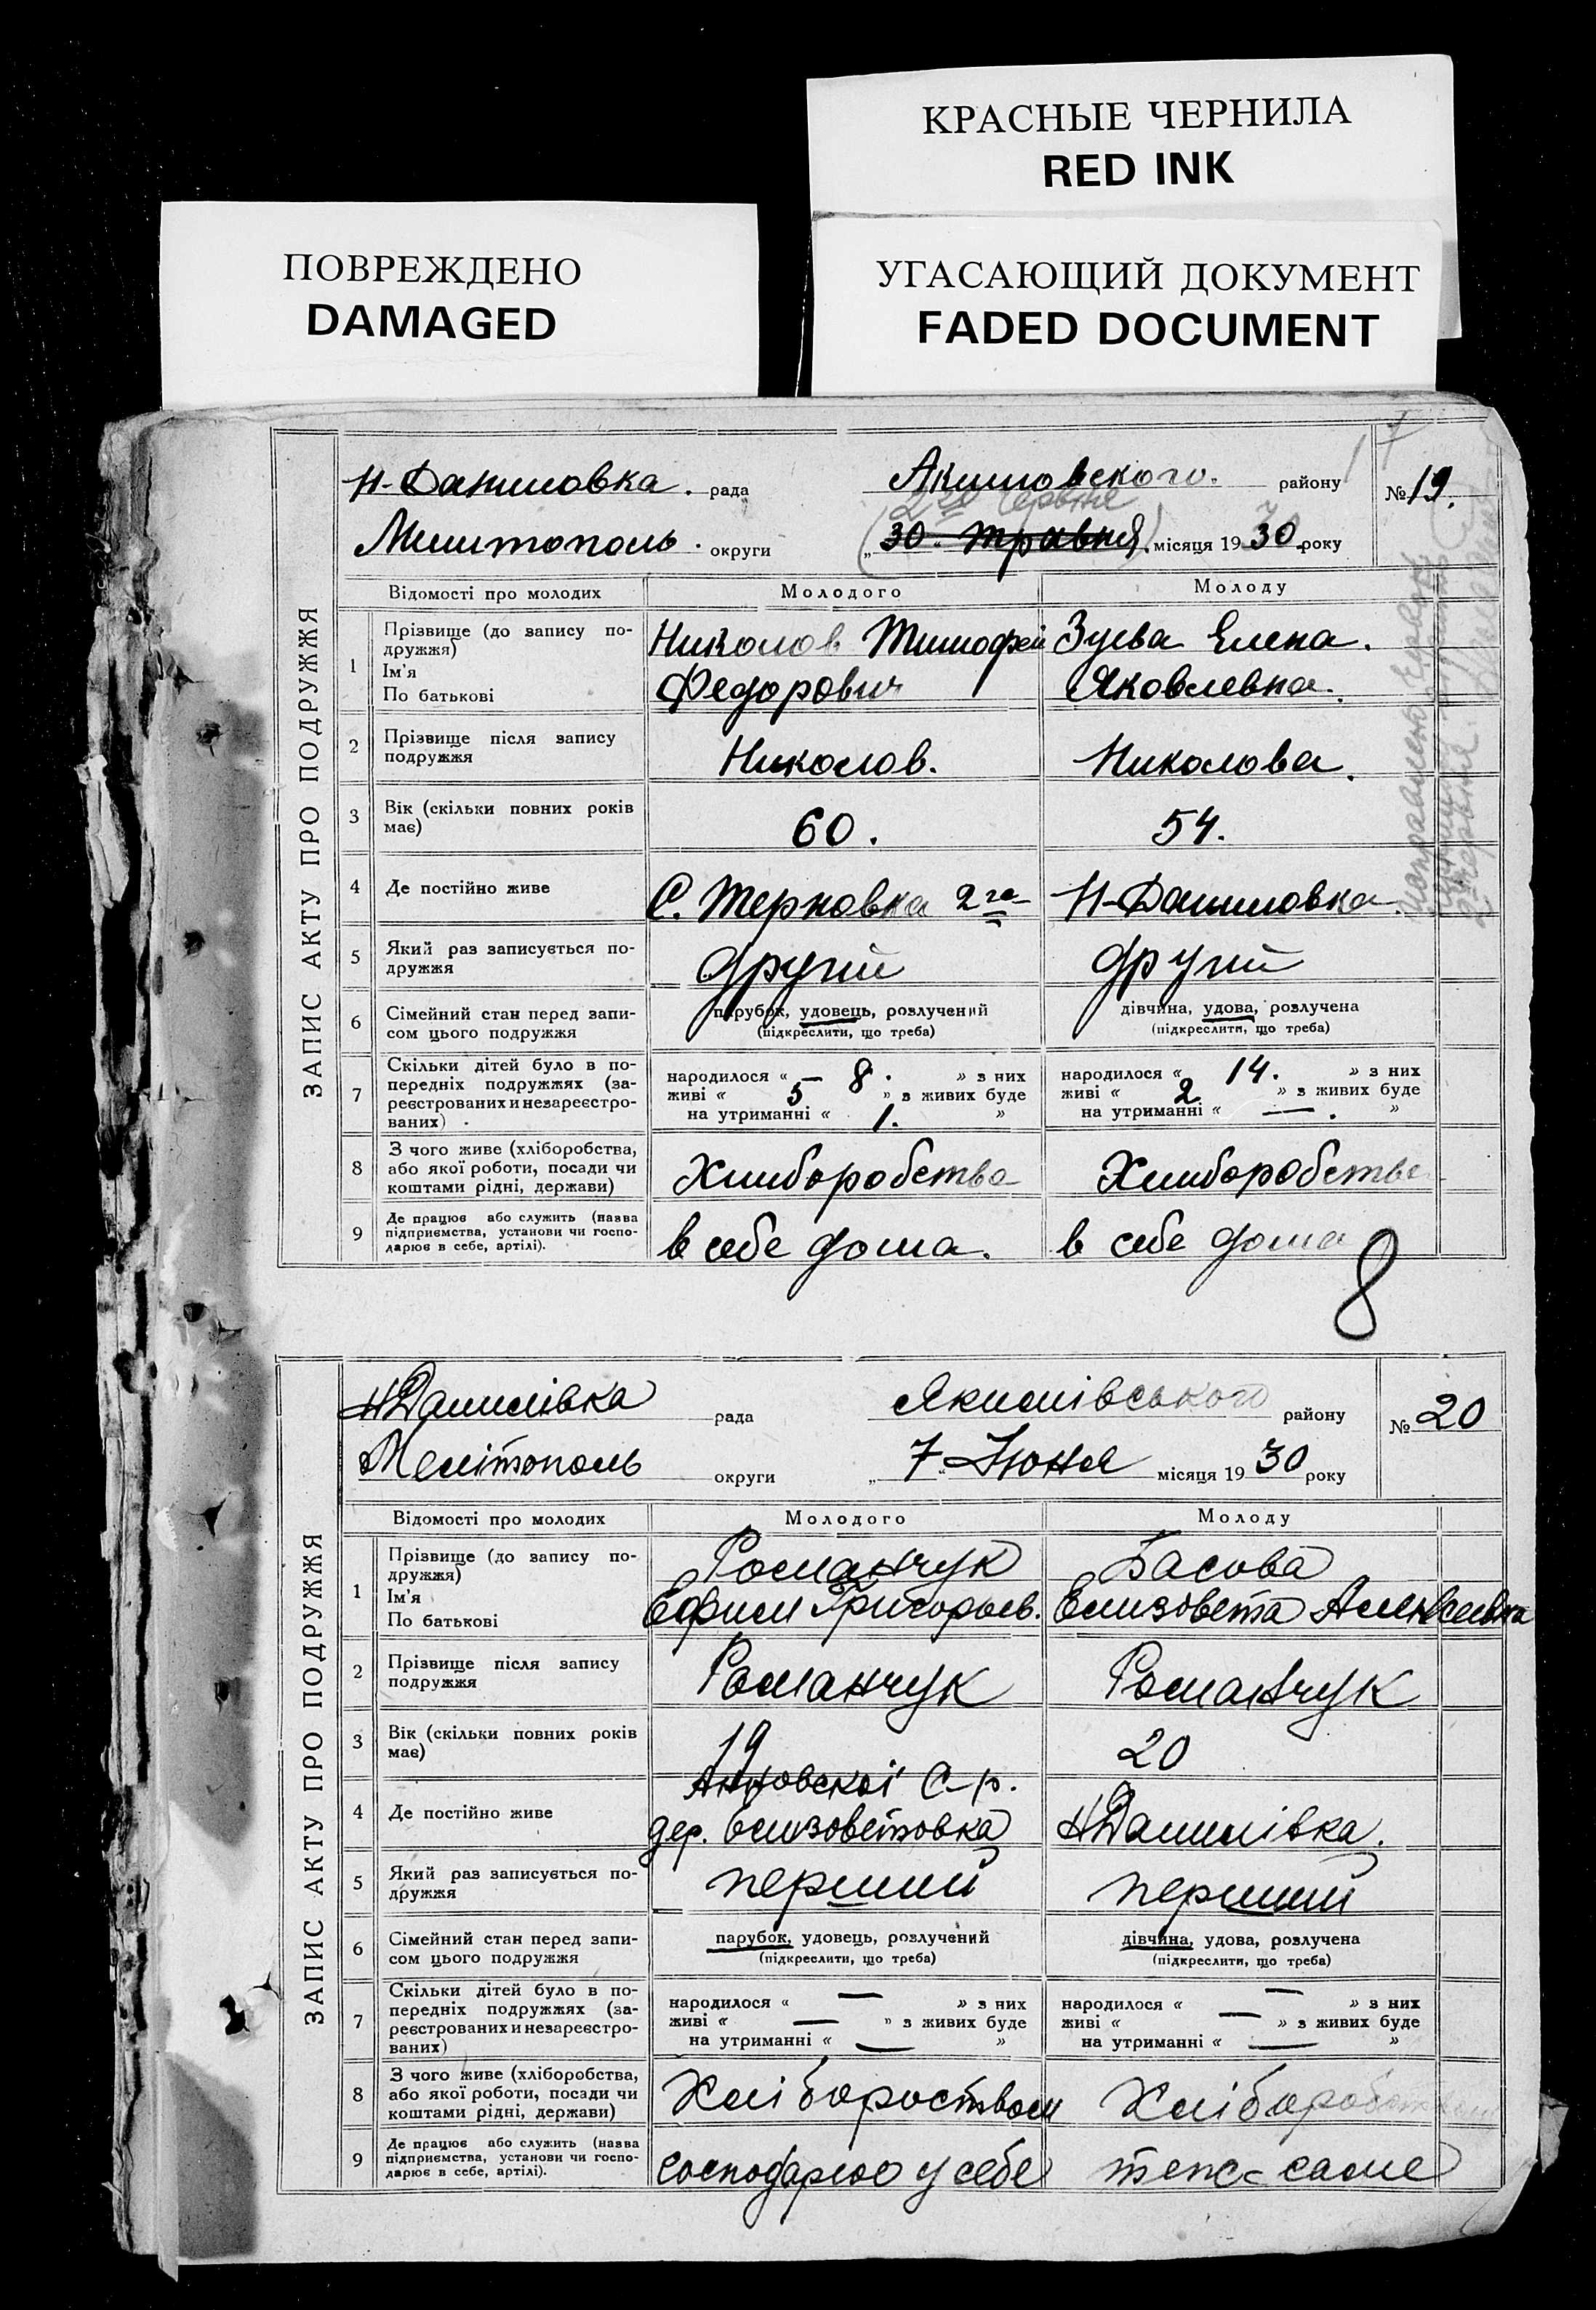 КРАСНЫЕ ЧЕРНИЛА
RED INK
ПОВРЕЖДЕНО
DAMAGED
УГАСАЮЩИЙ ДОКУМЕНТ
FADED DOCUMENT
17
ЗАПИС АКТУ ПРО ПОДРУЖЖЯ
Н-Даниловка. рада Акимовского. району № 19.
2го Червня
Милитополь. округи (" 30 " Травня) місяця 1930 року
Відомості про молодих Молодого Молоду
1 Прізвище (до запису по-
дружжя)
Ім'я
По батькові
Николов Тимофей
Федорович
Зуева Елена.
Яковлевна.
2 Прізвище після запису
подружжя
Николов. Николова.
3 Вік (скільки повних років
має)
60. 54.
4 Де постійно живе С. Терновка 2га Н-Даниловка.
5 Який раз записується по-
дружжя
другий другий
6 Сімейний стан перед запи-
сом цього подружжя
парубок, удовець, розлучений
(підкреслити, що треба)
дівчина, удова, розлучена
(підкреслити, що треба)
7 Скільки дітей було в по-
передніх подружжях (за-
реєстрованих и незареєстро-
ваних)
народилося « — 8. » з них
живі « 5 » з живих буде
на утриманні « 1. »
народилося « 14. » з них
живі « 2 » з живих буде
на утриманні « — . »
8 З чого живе (хліборобства,
або якої роботи, посади чи
коштами рідні, держави)
Хлиборобства Хлиборобства
9 Де працює або служить (назва
підприємства, установи чи госпо-
дарює в себе, артілі).
в себе дома. в себе дома
8
ЗАПИС АКТУ ПРО ПОДРУЖЖЯ
НДанилівка рада Якимівського району № 20
Мелітополь округи " 7 " Июня місяця 1930 року
Відомості про молодих Молодого Молоду
1 Прізвище (до запису по-
дружжя)
Ім'я
По батькові
Романчук
Ефим Григорьев.
Басова
Елизовета Алексеевна
2 Прізвище після запису
подружжя
Романчук Романчук
3 Вік (скільки повних років
має)
19 20
4 Де постійно живе
Анновскоі С-р.
дер. Елизоветовка
НДанилівка.
5 Який раз записується по-
дружжя
перший перший
6 Сімейний стан перед запи-
сом цього подружжя
парубок, удовець, розлучений
(підкреслити, що треба)
дівчина, удова, розлучена
(підкреслити, що треба)
7 Скільки дітей було в по-
передніх подружжях (за-
реєстрованих и незареєстро-
ваних)
народилося « — » з них
живі « — » з живих буде
на утриманні « — »
народилося « — » з них
живі « — » з живих буде
на утриманні « — »
8 З чого живе (хліборобства,
або якої роботи, посади чи
коштами рідні, держави)
Хліборοством Хліборобством
9 Де працює або служить (назва
підприємства, установи чи госпо-
дарює в себе, артілі).
господарює у себе теж-саме